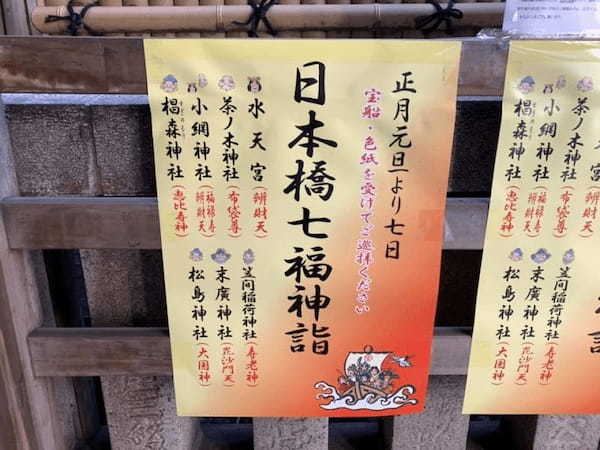 正月元旦より七日
宝船・色紙を受けてご巡拝ください
日本橋七福神詣
水天宮(辨財天)
茶ノ木神社(布袋尊)
小網神社(福禄寿 辨財天)
椙森神社(恵比寿神)
すぎのもり
笠間稲荷神社(寿老神)
末廣神社(毘沙門天)
松島神社(大国神)
水天宮
茶ノ木神社(布袋尊)
小網神社(福禄寿 辨財天)
椙森神社(恵比寿神)
すぎのもり
笠間稲荷神社(寿老神)
末廣神社(毘沙門天)
松島神社(大国神)